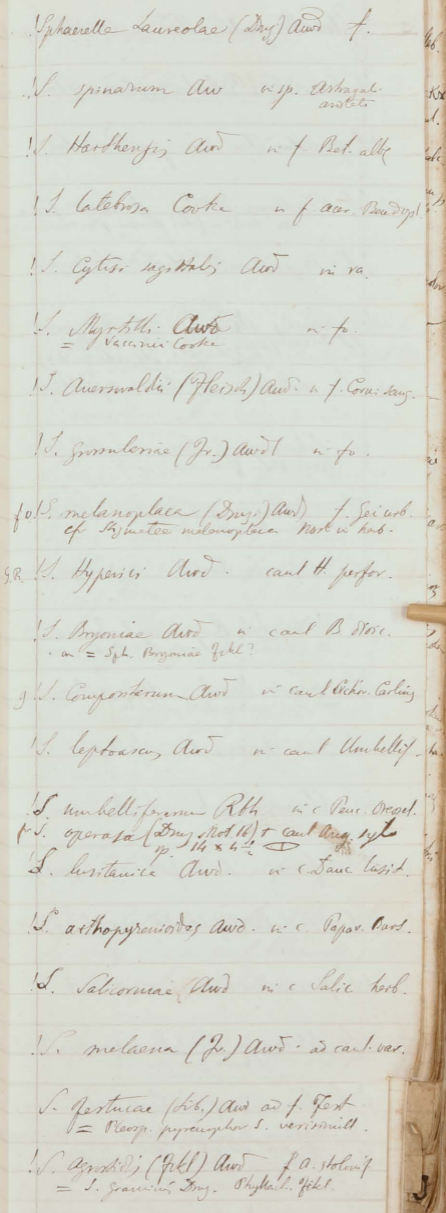 ! Sphaerella Laureolae (Dmz) Awd f.
! S. spinarum Aw in sp. Astragali
aristati
! S. Harthensis Awd in f Bet. alb
! S. latebrosa Cooke in f acer. Pseudopl.
! S. Cytisi sagittalis Awd in ra.
! S. Myrtilli Awd in fo.
= Vaccinii Cooke
! S. Auerswaldii (Fleisch) Awd. in f. Corni sang.
! S. grossulariae (Fr.) Awd in fo.
fo ! S. melanoplaca (Dmz.) Awd f. Gei urb.
cf Stigmatea melanoplaca in hab.
G.B. ! S. Hyperici Awd. caul H. perfor.
! S. Bryoniae Awd in caul B dioic.
an = Sph. Bryoniae Fckl?
g ! S. Compositarum Awd in caul Cichor. Carlin
! S. leptoasca Awd in caul Umbellif.
! S. umbelliferarum Rbh in c Peuc. Oreosel.
S. operosa (Dmz Not 16) + caul Ang. syl
sp. 14 x 4 ½
! S. lusitanica Awd. in c Dauc lusit.
! S. aethopyrenioides Awd. in c. Papav.
! S. Salicorniae Awd in c Salic herb.
! S. melaena (Fr.) Awd. ad caul. var.
S. festucae (Lib.) Awd ad f. Fest
= Pleosp. pyrenophor S. verisimill.
! S. Agrostidis (Fckl) Awd f A. stolonif
= S. graminis Dmz. Phyllach. Fckl.